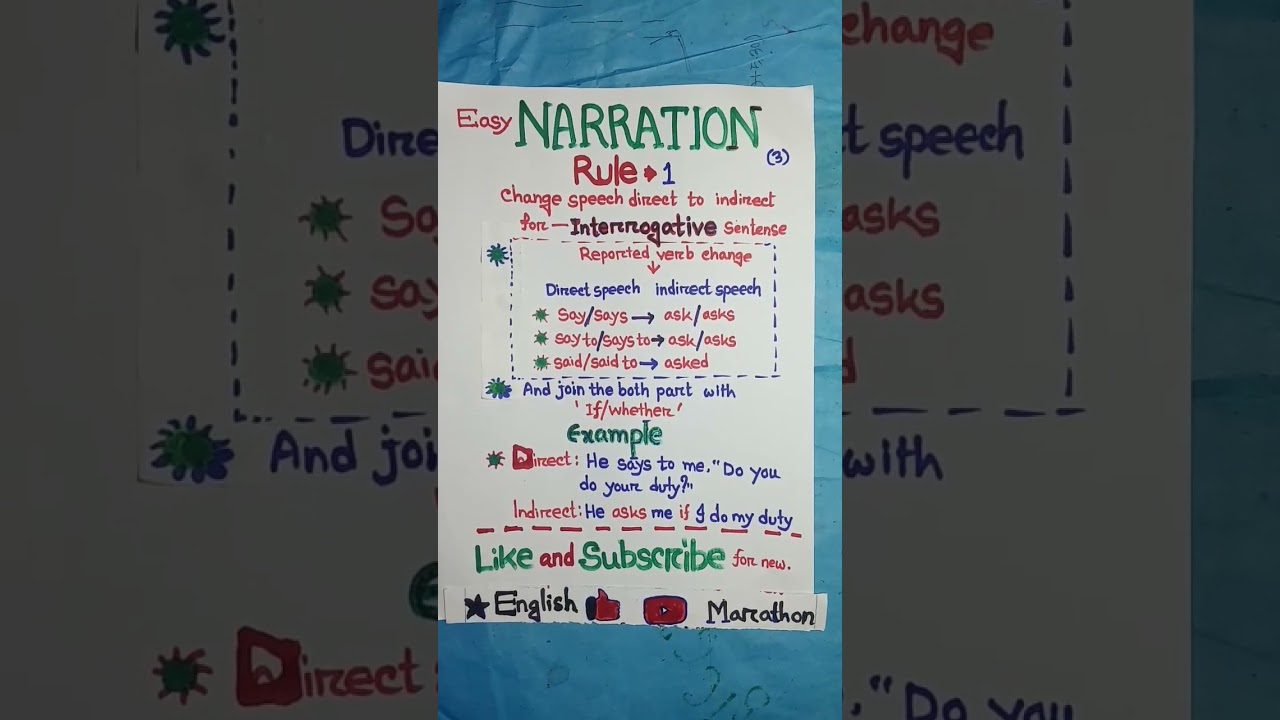 Easy NARRATION
(3)
Rule → 1
Change speech direct to indirect
for — Interrogative sentence
Reported verb change
↓
Direct speech indirect speech
say/says → ask/asks
say to/says to → ask/asks
said/said to → asked
And join the both part with
'If/whether'
Example
Direct: He says to me, "Do you
do your duty?"
Indirect: He asks me if I do my duty
Like and Subscribe for new.
★ English Marathon